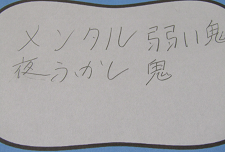 メンタル弱い鬼
夜ふかし 鬼